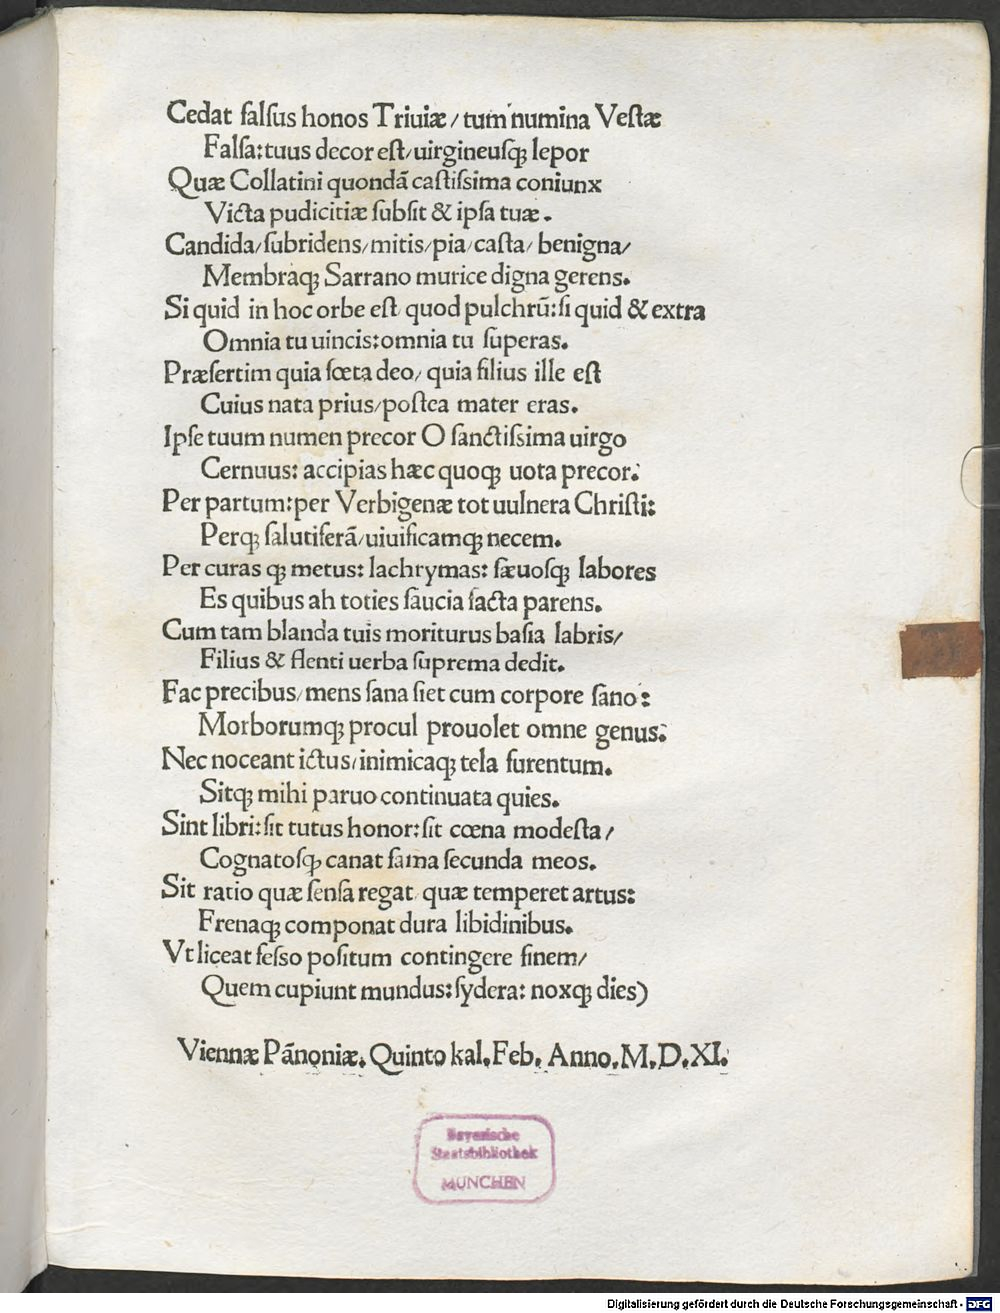 Cedat falſus honos Triuiæ / tum numina Veſtæ
Falſa: tuus decor eſt / uirgineuſq; lepor
Quæ Collatini quondā caſtiſsima coniunx
Victa pudicitiæ ſubſit & ipſa tuæ.
Candida / ſubridens / mitis / pia / caſta / benigna /
Membraq; Sarrano murice digna gerens.
Si quid in hoc orbe eſt quod pulchrū: ſi quid & extra
Omnia tu uincis: omnia tu ſuperas.
Præſertim quia fœta deo / quia filius ille eſt
Cuius nata prius / poſtea mater eras.
Ipſe tuum numen precor O ſanctiſsima uirgo
Cernuus: accipias hæc quoq; uota precor:
Per partum: per Verbigenæ tot uulnera Chriſti:
Perq; ſalutiferā / uiuificamq; necem.
Per curas q; metus: lachrymas: ſæuoſq; labores
Es quibus ah toties ſaucia facta parens.
Cum tam blanda tuis moriturus baſia labris /
Filius & flenti uerba ſuprema dedit.
Fac precibus / mens ſana ſiet cum corpore ſano:
Morborumq; procul prouolet omne genus:
Nec noceant ictus / inimicaq; tela furentum.
Sitq; mihi paruo continuata quies.
Sint libri: ſit tutus honor: ſit cœna modeſta /
Cognatoſq; canat fama ſecunda meos.
Sit ratio quæ ſenſa regat quæ temperet artus:
Frenaq; componat dura libidinibus.
Vt liceat feſſo poſitum contingere finem /
Quem cupiunt mundus: ſydera: noxq; dies)
Viennæ Pānoniæ. Quinto kal. Feb. Anno. M.D.XI.
Bayerische
Staatsbibliothek
MÜNCHEN
Digitalisierung gefördert durch die Deutsche Forschungsgemeinschaft - DFG